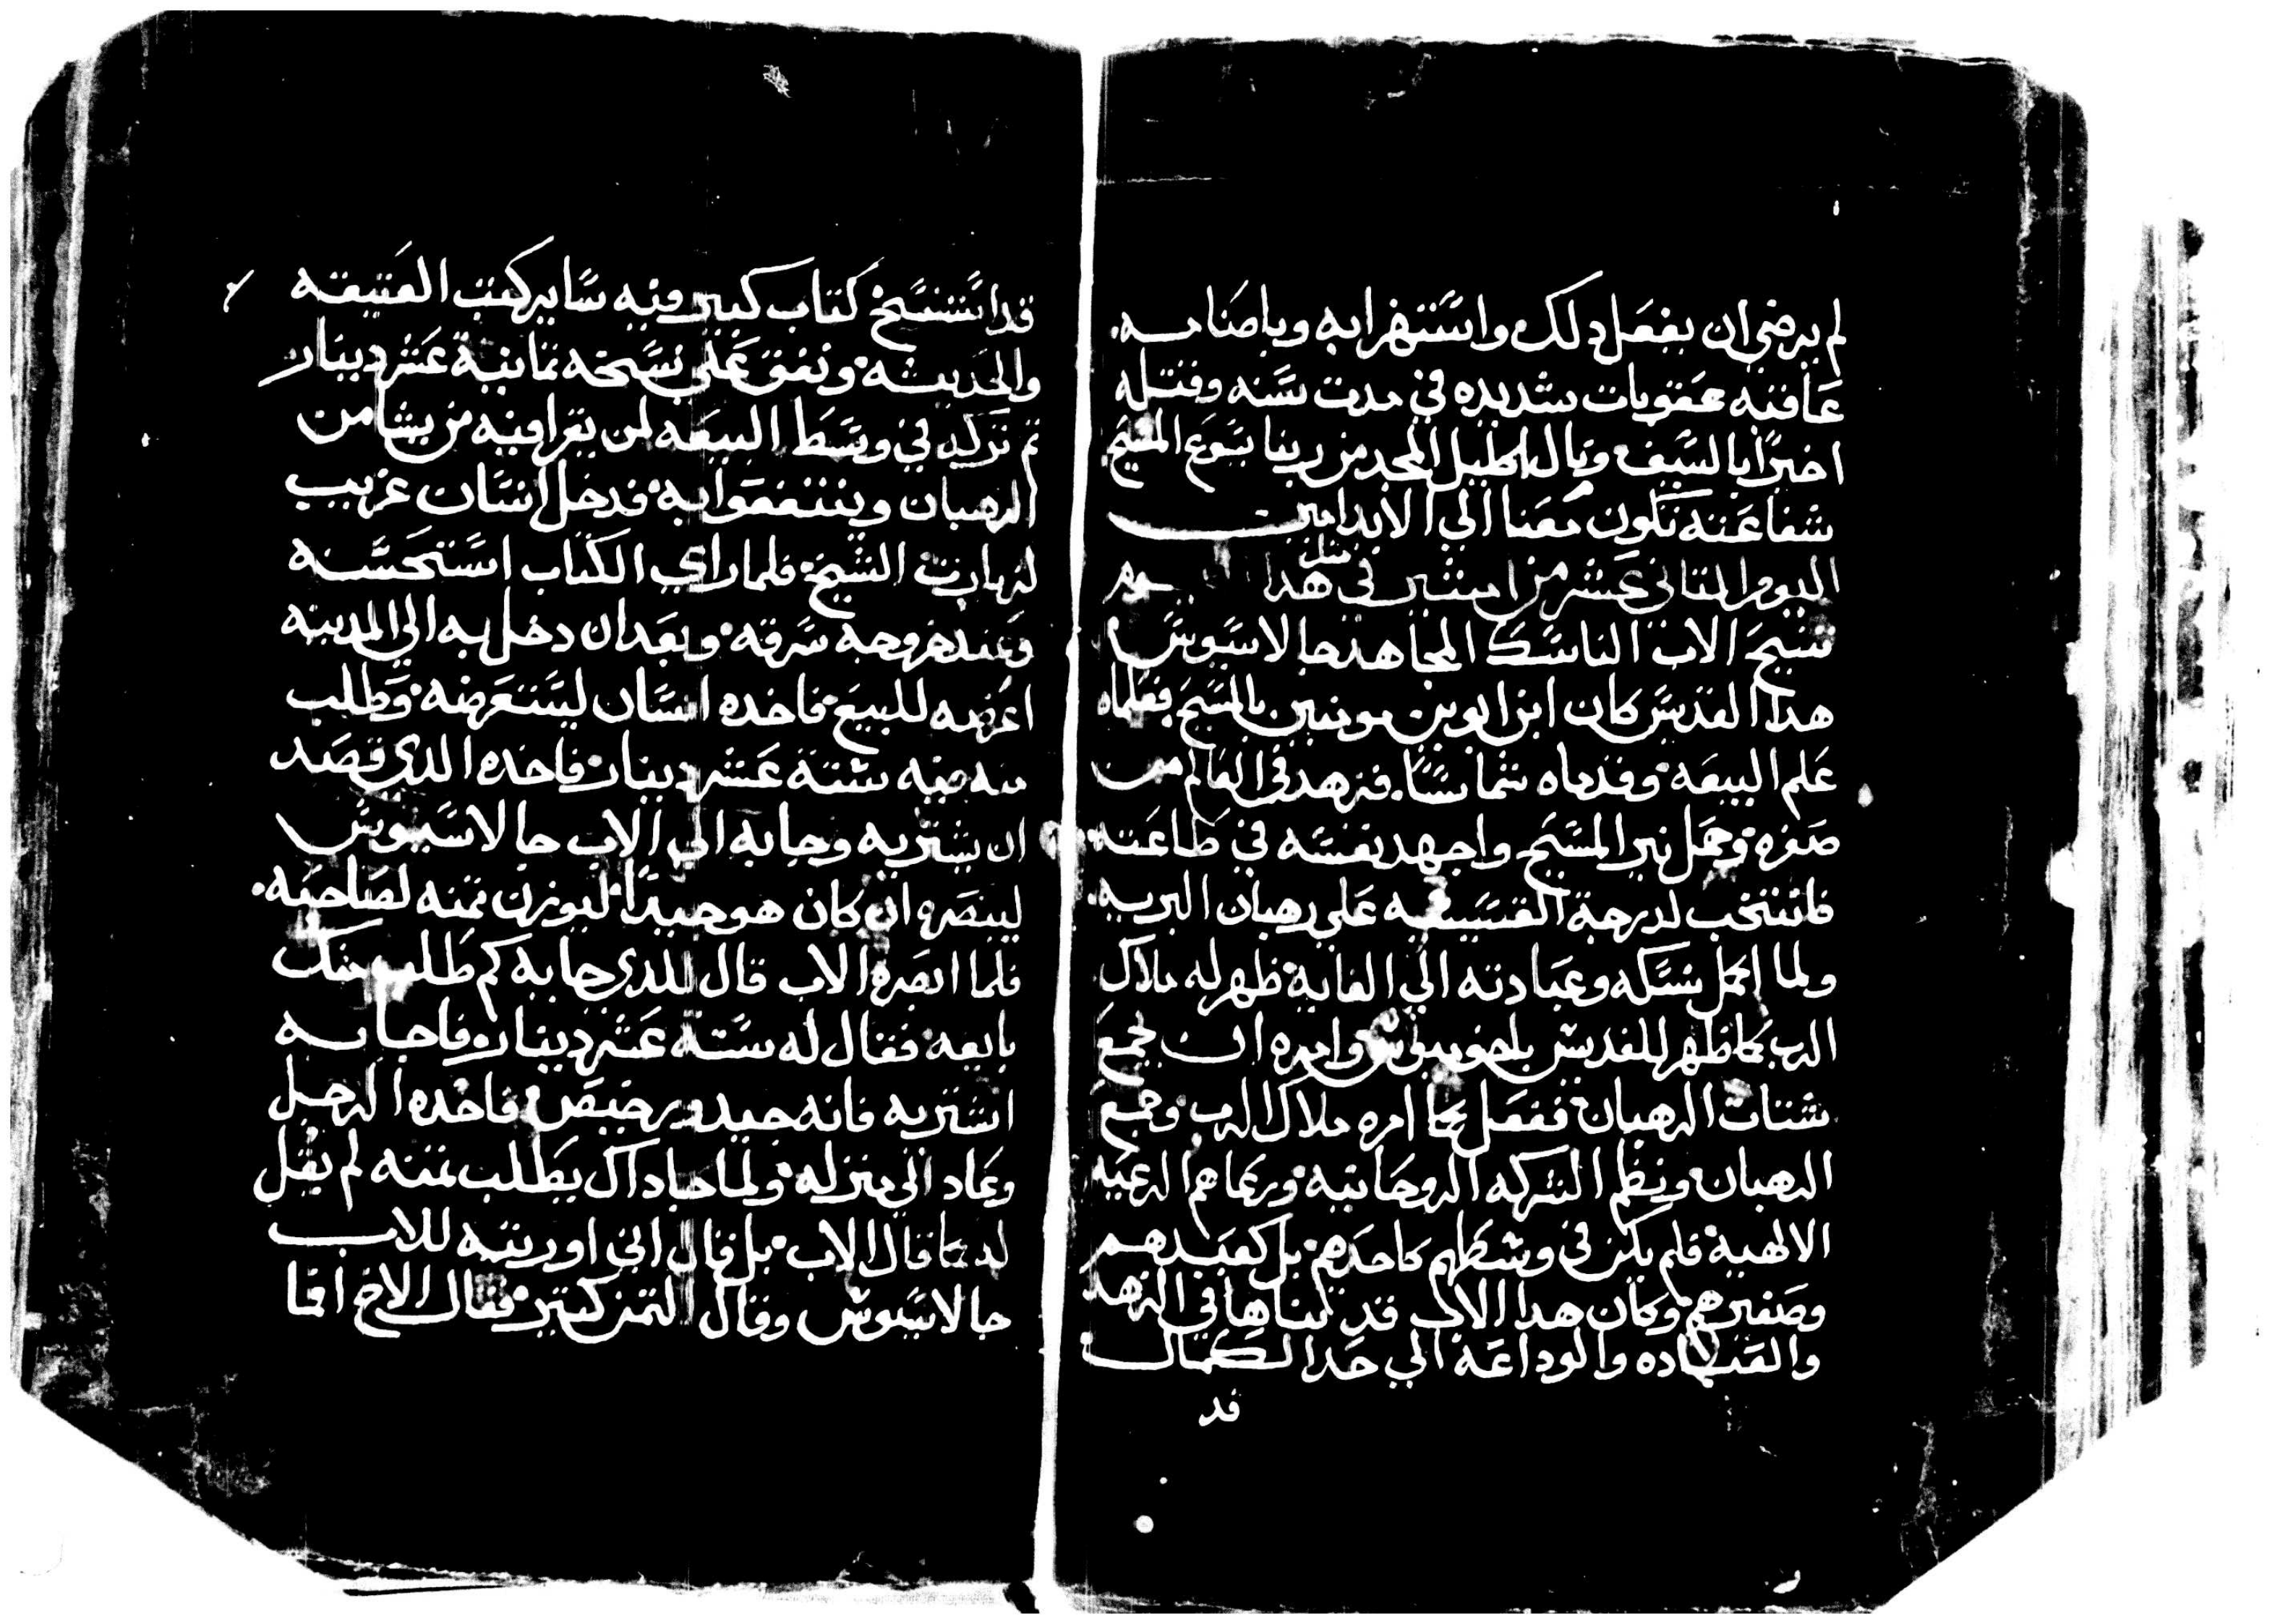 لم يرضي ان يفعل دلك واستهزابه وباصنامه.
عاقبه عقوبات شديده في مدت سنه وقتله
اخيرًا بالسيف ونال اكليل المجد من ربنا يسوع المسيح
شفاعته تكون معنا الي الابد امين
اليوم التاني عشر من امشير في مثل هدا
تنيح الاب الناسك المجاهد جالاسيوس
هدا القديس كان ابن ابوين مومنين بالمسيح فعلماه
علم البيعه وقدماه شماسًا. فزهد في العالم من
صغره وحمل نير المسيح واجهد نفسه في طاعته
فانتخب لدرجة القسيسيه علي رهبان البريه
ولما اكمل نسكه وعبادته الي الغايه ظهر له ملاك
الرب كما ظهر للقديس باخوميوس وامره ان يجمع
شتات الرهبان ففعل كما امره ملاك الرب وجمع
الرهبان ونظم الشركه الروحانيه ورعاهم الرعيه
الالهية فلم يكن في وسطهم كاحدهم بل كعبدهم
وصغيرهم وكان هدا الاب قد تناها في الزهد
والقناده والوداعة الي حد الكمال
قد
قد استنسخ كتاب كبير فيه ساير كتب العتيقه
والحديثه ونفق علي نسخه تمانية عشر دينار
تم تركه في وسط البيعه لمن يقرا فيه من يشا من
الرهبان وينتفعوا به فدخل انسان غريب
لزيارت الشيخ فلما راي الكتاب استحسنه
وعند خروجه سرقه وبعد ان دخل به الي المدينه
اعرضه للبيع فاخده انسان ليستعرضه وطلب
منه فيه ستة عشر دينار فاخده الدي قصد
ان يشتريه وجابه الي الاب جالاسيوس
لينصره ان كان هو جيدًا ليوزن تمنه لصاحبه.
فلما ابصره الاب قال للدي جابه كم طلب منك
بايعه فقال له ستة عشر دينار فاجابه
اشتريه فانه جيد ورخيص فاخده الرجل
وعاد الي منزله ولما جا داك يطلب تمنه لم يقل
له كما قال الاب بل قال اني اوريته للاب
جالاسيوس وقال التمن كتير فقال الاخ اما